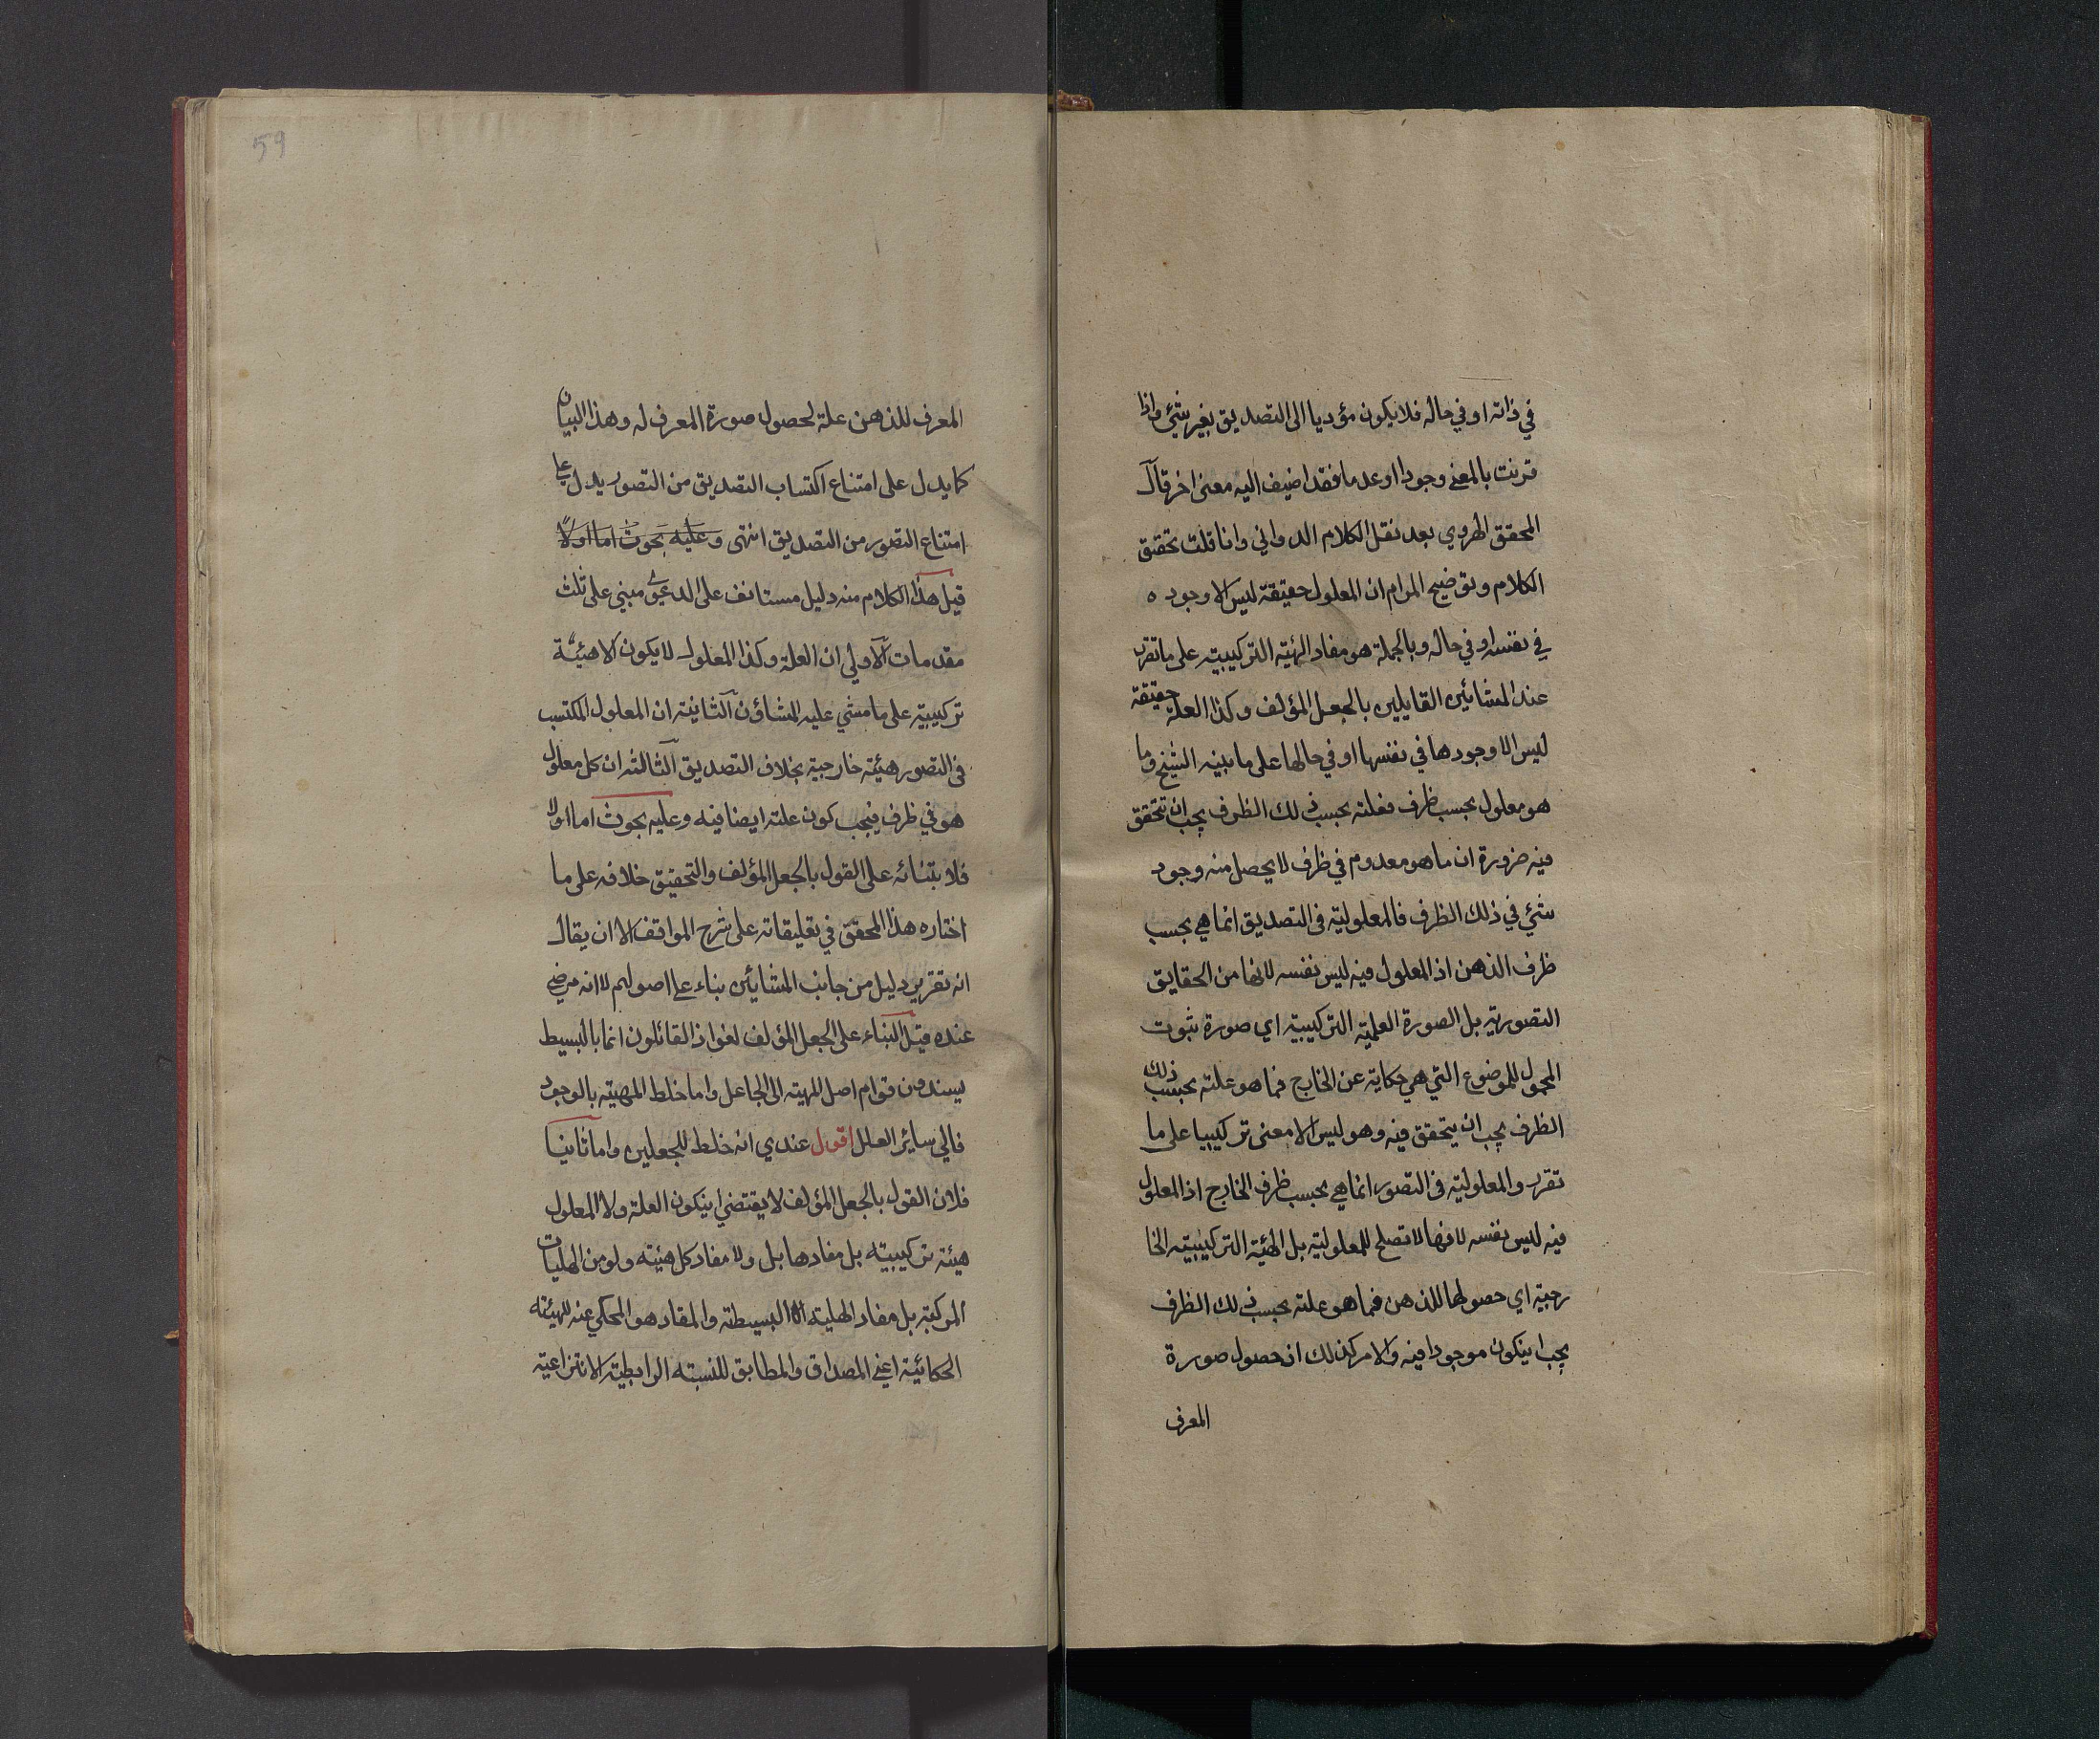 في ذاته او في حاله فلا يكون مؤديا الى التصديق بغير شئ واذا
قرنت بالمعنى وجودا او عدما فقد اضيف اليه معنى اخر قال
المحقق الهروي بعد نقل الكلام الدواني وانا قلت تحقيق
الكلام وتوضيح المرام ان المعلول حقيقة ليس الا وجوده
في نفسه او في حاله وبالجملة هو مفاد الهيئة التركيبية على ما تقرر
عند المشائين القايلين بالجعل المؤلف وكذا العلة حقيقة
ليس الا وجودها في نفسها او في حالها على ما بينه الشيخ وما
هو معلول بحسب ظرف فعلته بحسب ذلك الظرف يجب ان تتحقق
فيه ضرورة ان ما هو معدوم في ظرف لا يحصل منه وجود
شئ في ذلك الظرف فالمعلولية في التصديق انما هي بحسب
ظرف الذهن اذ المعلول فيه ليس نفسه لانها من الحقايق
التصورية بل الصورة العلمية التركيبية اي صورة ثبوت
المحمول للموضوع التي هي حكاية عن الخارج فما هو علته بحسب ذلك
الظرف يجب ان يتحقق فيه وهو ليس الا معنى تركيبيا على ما
تقرر والمعلولية في التصور انما هي بحسب ظرف الخارج اذ المعلول
فيه ليس نفسه لانها لا تصلح للمعلولية بل الهيئة التركيبية الخا
رجية اي حصولها للذهن فما هو علته بحسب ذلك الظرف
يجب ان يكون موجودا فيه والامر كذلك اذ حصول صورة
المعرف
59
المعرف للذهن علة لحصول صورة المعرف له وهذا البيان
كما يدل على امتناع اكتساب التصديق من التصور يدل على
امتناع التصور من التصديق انتهى وعليه بحوث اما اولا
قيل هذا الكلام منه دليل مستانف على الدعوى مبني على ثلث
مقدمات الاولى ان العلة وكذا المعلول لا يكون الا هيئة
تركيبية على ما مشي عليه المشاؤن الثانية ان المعلول المكتسب
في التصور هيئة خارجية بخلاف التصديق الثالثة ان كل معلول
هو في ظرف فيجب كون علته ايضا فيه وعليه بحوث اما اولا
فلابتنائه على القول بالجعل المؤلف والتحقيق خلافه على ما
اختاره هذا المحقق في تعليقاته على شرح المواقف الا ان يقال
انه تقرير دليل من جانب المشائين بناء على اصولهم لا انه مرضي
عنده قيل البناء على الجعل المؤلف لغو اذ القائلون انما بالبسيط
يسندون قوام اصل المهية الى الجاعل واما خلط المهية بالوجود
فالى سائر العلل اقول عندي انه خلط للجعلين واما ثانيا
فلان القول بالجعل المؤلف لا يقتضي ان يكون العلة ولا المعلول
هيئة تركيبية بل مفادها بل ولا مفاد كل هيئة ولو من الهليات
المركبة بل مفاد الهلية البسيطة والمفاد هو المحكي عنه للهيئة
الحكائية اعني المصداق والمطابق للنسبة الرابطية الانتزاعية